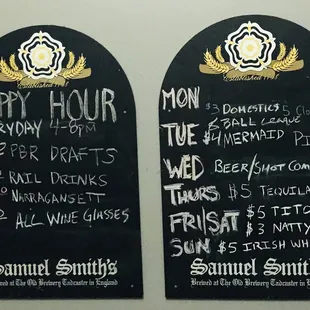 Established 1758
PPY HOUR
RYDAY 4-8PM
PBR DRAFTS
RAIL DRINKS
NARRAGANSETT
ALL WINE GLASSES
Samuel Smith's
Brewed at The Old Brewery Tadcaster in England
Established 1758
MON $3 DOMESTICS $
8 BALL LEAGUE
TUE $4 MERMAID PI
WED BEER/SHOT COM
THURS $5 TEQUILA
FRI/SAT $5 TITO
$3 NATTY
SUN $5 IRISH WH
Samuel Smit
Brewed at The Old Brewery Tadcaster in Engl